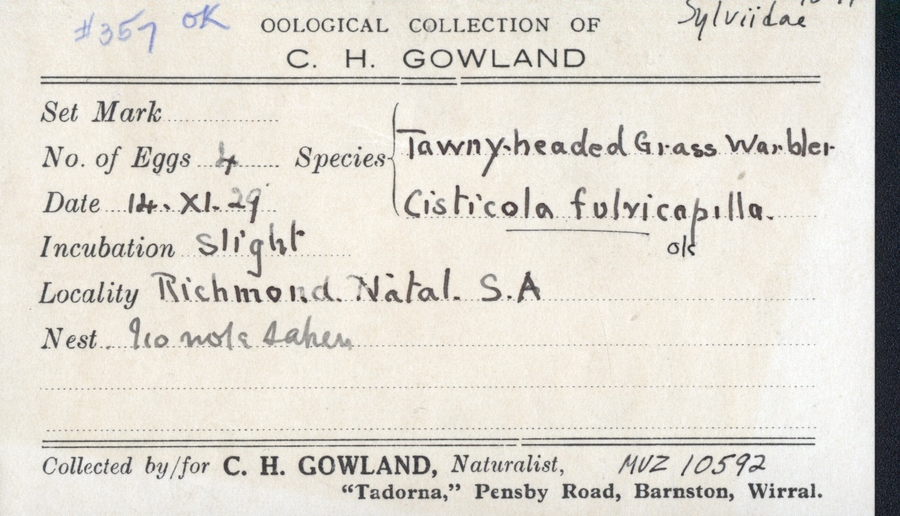 #357 OK
Sylviidae
OOLOGICAL COLLECTION OF
C. H. GOWLAND
Set Mark
No. of Eggs 4
Species Tawny-headed Grass Warbler
Date 14. XI. 29
Cisticola fulvicapilla.
ok
Incubation Slight
Locality Richmond. Natal. S.A
Nest. No note taken
Collected by/for C. H. GOWLAND, Naturalist,
MVZ 10592
"Tadorna," Pensby Road, Barnston, Wirral.